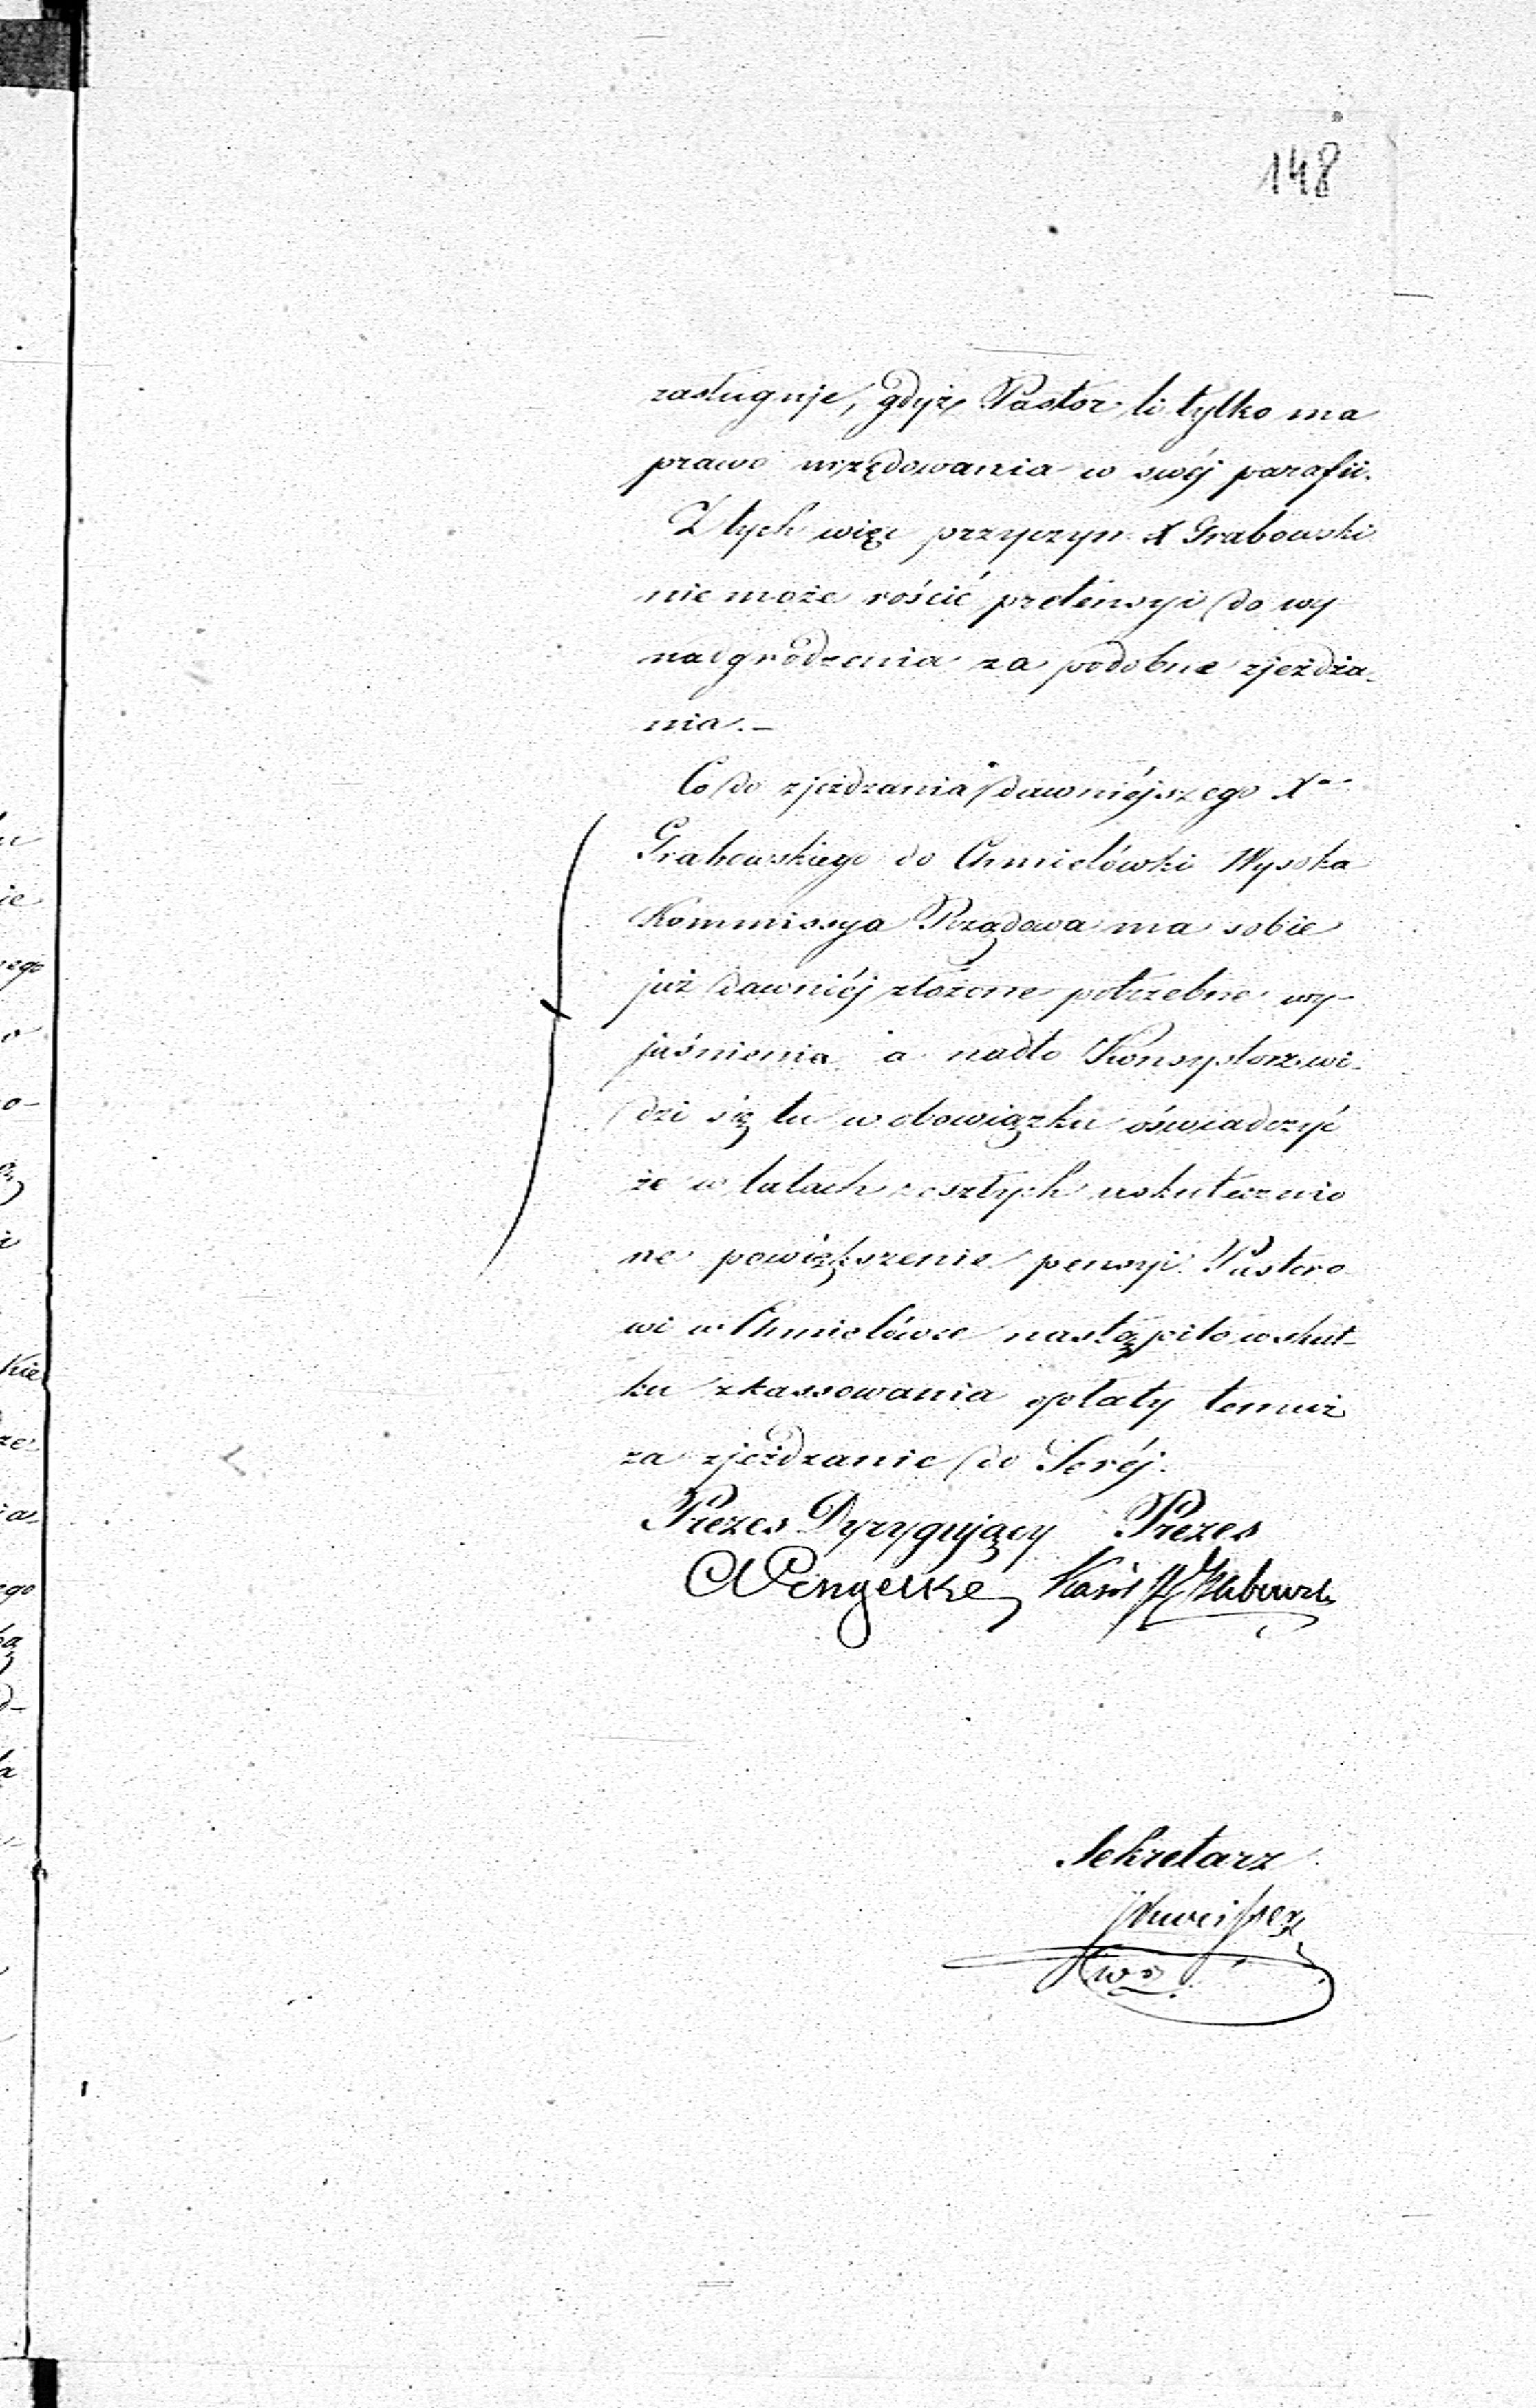 148
zasługuje, gdyż Pastor li tylko ma
prawo urzędowania w swéj parafii.
Z tych więc przyczyn X Grabowski
nie może rościć pretensyi do wy
nadgrodzenia za podobne zjeżdża-
nia. –
Co do zjeżdzania dawniéjszego Xa
Grabowskiego do Chmielówki Wysoka
Kommissya Rządowa ma sobie
już dawniéj złożone potrzebne wy-
jaśnienia a nadto Konsystorz wi-
dzi się tu w obowiązku oświadczyć
że w latach zeszłych uskutecznio
ne powiększenie pensyi Pastoro
wi w Chmielówce nastąpiło w skut-
ku zkassowania opłaty temuż
za zjeżdzanie do Seréj.
Prezes Dyrygujący Prezes
Wengerke
Sekretarz